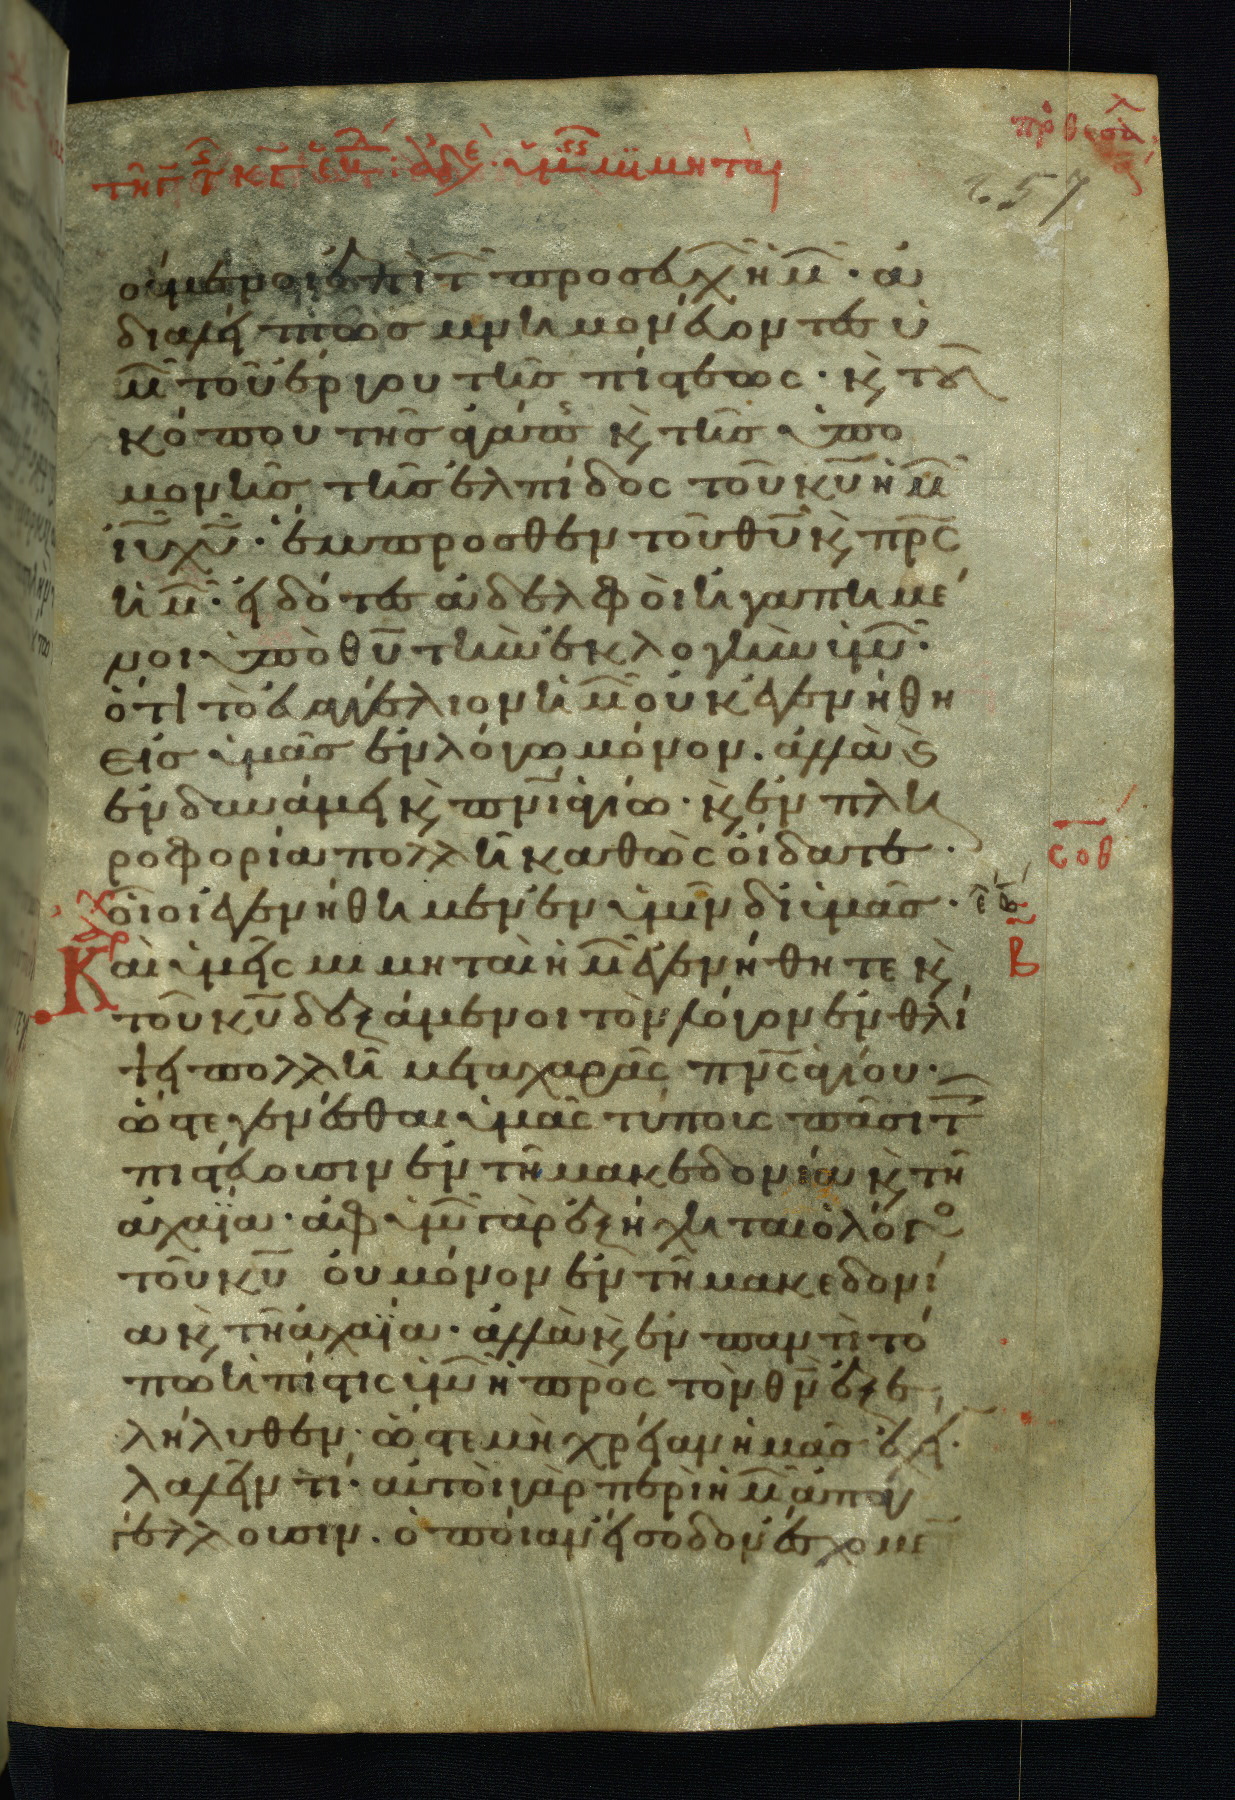 ούμενοι ἐπὶ τ προσευχ ἡμ · ἀ
διαλείπτως μνημονεύοντες ὑ
μ τοῦ ἔργου τῆς πίστεως · κ̀ τοῦ
κόπου τῆς ἀγάπης κ̀ τῆς ὑπο
μονῆς τῆς ἐλπίδος τοῦ κυ ἡμ
ιυ χυ · ἔμπροσθεν τοῦ θυ κ̀ πρς
ἡμ · εἰδότες ἀδελφοὶ ἠγαπημέ
νοι ὑπὸ θυ τὴν ἐκλογὴν ὑμ ·
ὅτι τὸ εὐαγγέλιον ἡμ οὐκ ἐγενήθη
εἰς ὑμᾶς ἐν λόγω μόνον . ἀλλὰ κ̀
ἐν δυνάμει κ̀ πνι ἁγίω · κ̀ ἐν πλη
ροφορία πολλῆ καθὼς οἴδατε ·
οἷοι ἐγενήθημεν ἐν ὑμῖν δι ὑμᾶς ·
Καὶ ὑμεῖς μιμηταὶ ἡμ ἐγενήθητε κ̀
τοῦ κυ δεξάμενοι τὸν λόγον ἐν θλί
ψει πολλῆ μετα χαρᾶς πνς ἁγίου ·
ὥστε γενέσθαι ὑμᾶς τύποις πᾶσι τ
πιστεύουσιν ἐν τῆ μακεδονία κ̀ τῆ
ἀχαΐα · ἀφ ὑμ γὰρ ἐξήχηται ὁ λόγο
τοῦ κυ οὐ μόνον ἐν τῆ μακεδονί
α κ̀ τῆ ἀχαΐα · ἀλλὰ κ̀ ἐν παντὶ τό
πω ἡ πίστις ὑμ ἡ πρὸς τὸν θν ἐξε
λήλυθεν · ὥστε μὴ χρείαν ἡμᾶς ἔχει ·
λαλεῖν τί · αὐτοὶ γὰρ περὶ ἡμ ἀπαγ
γέλλουσιν . ὁποίαν εἴσοδον ἔσχομε
σοθ
Β